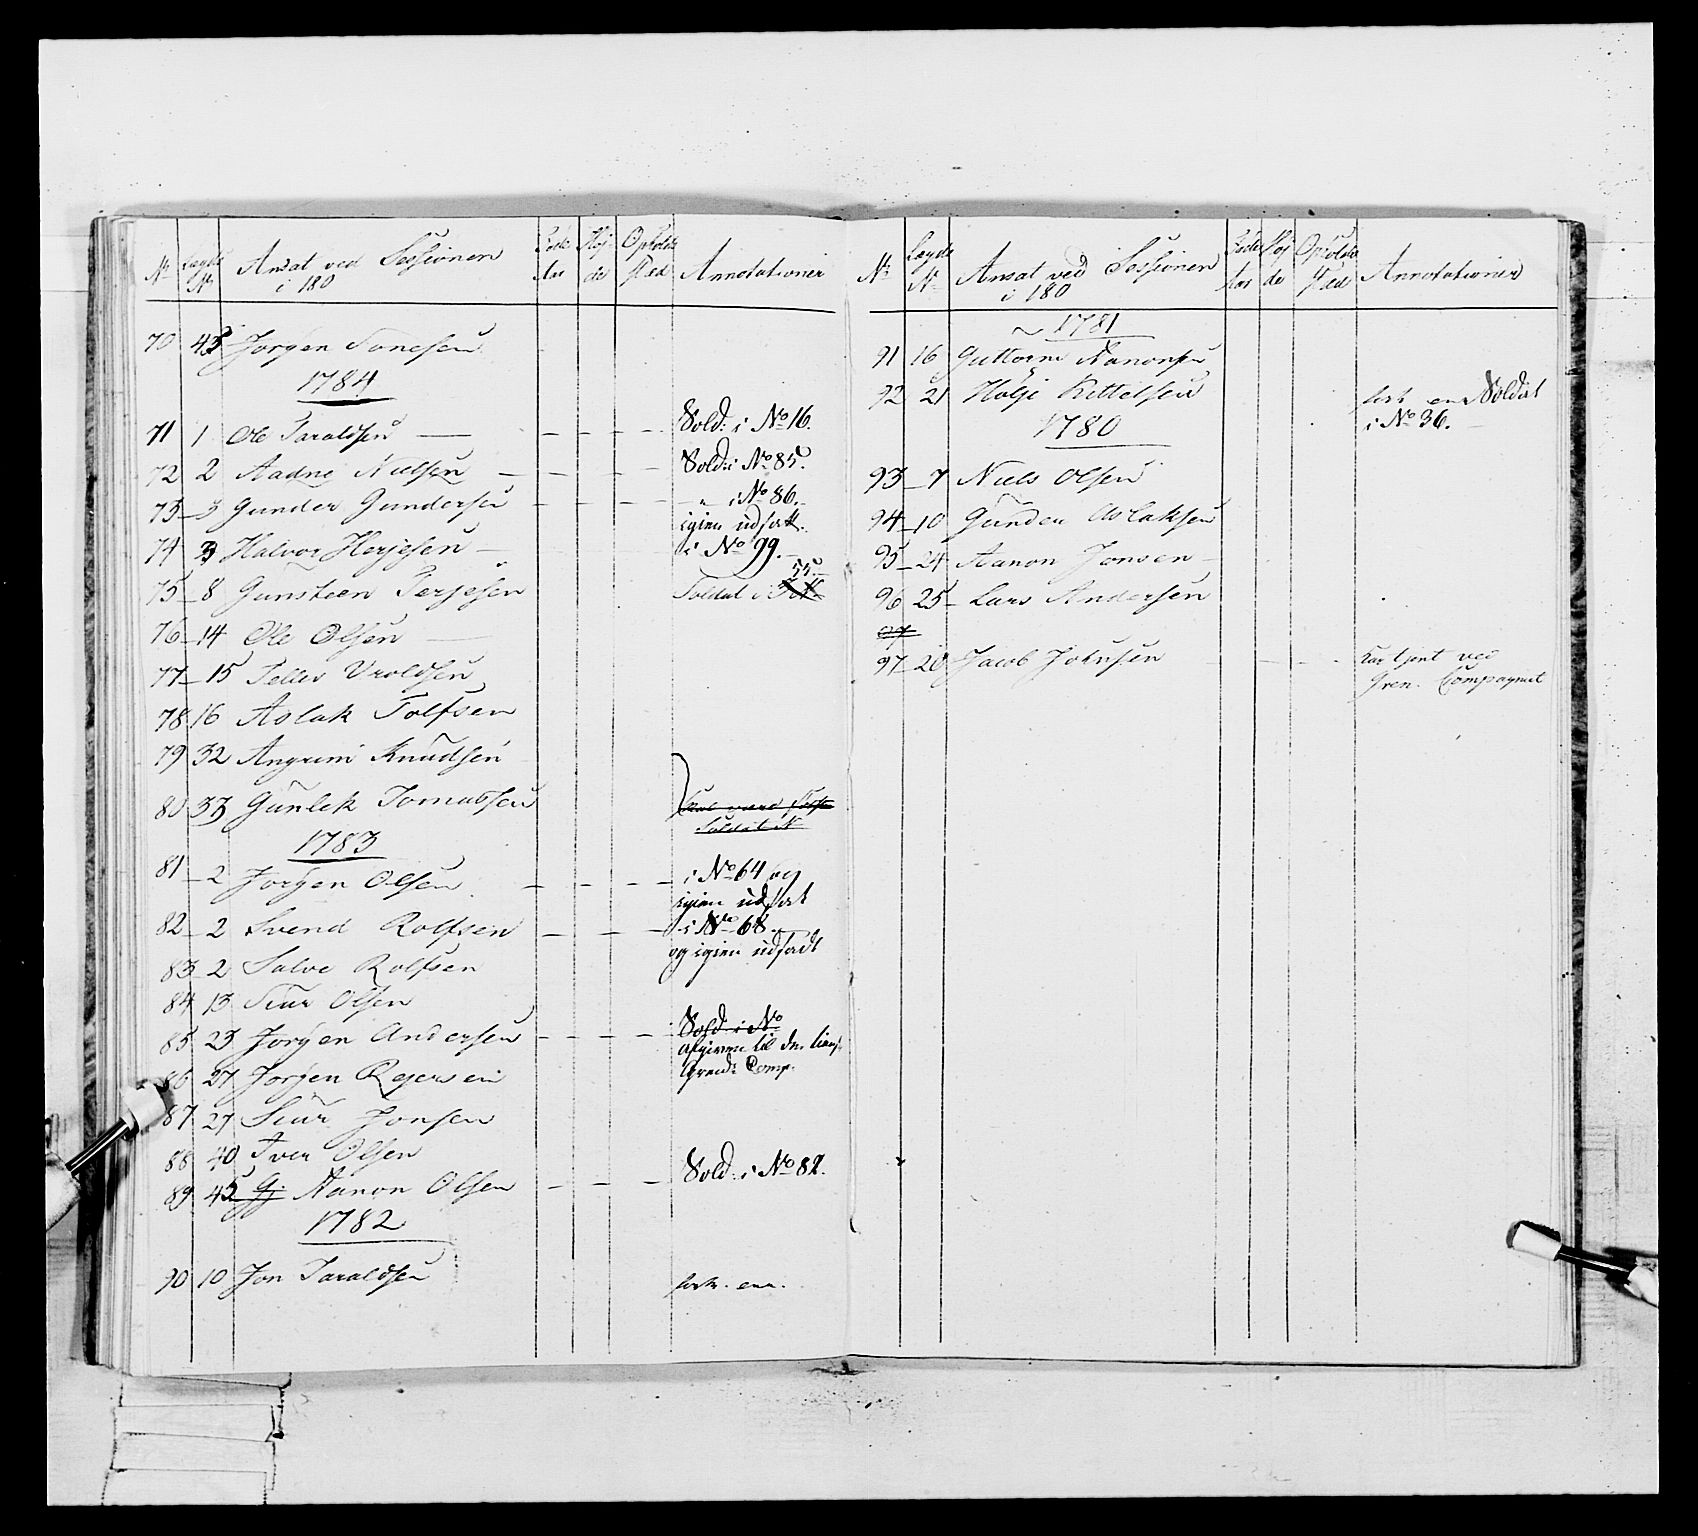 No Lægds No Ansat ved Sessionen i 180 Føde Aar Høj de Opholds Stæd Annotationer
70 43 Jorgen Tonesen
1784
71 1 Ole Taraldsen Sold: i No 16.
72 2 Aadne Nielsen Sold: i No 85.
73 3 Gunder Gundersen " i No 86.
igien udsatt.
74 3 Halvor Herjesen i No 99.
75 8 Gunsteen Terjesen Soldat i 55.
76 14 Ole Olsen
77 15 Tellev Vroldsen
78 16 Aslak Tolfsen
79 32 Angrim Knudsen
80 33 Gunlek Tomassen Skal være
Soldat N
1783
81 2 Jorgen Olsen i No 64 og
igien udsat
82 2 Svend Rolfsen i No 68.
og igien udsadt
83 2 Salve Rolfsen
84 13 Siur Olsen
85 23 Jorgen Andersen Sold: i No
Afgiven til den
Grend: Comp.
86 27 Jorgen Reiersen
87 27 Siur Jonsen
88 40 Iver Olsen
89 45 G: Aanon Olsen Sold: i No 82.
1782
90 10 Jon Taraldsen
No Lægds No Ansat ved Sessionen i 180 Føde Aar Høj de Opholds Stæd Annotationer
1781
91 16 Guttorm Aanonsen
92 21 Holje Kittelsen Soldat
i No 36.
1780
93 7 Niels Olsen
94 10 Gunder Aslaksen
95 24 Aanon Jonsen
96 25 Lars Andersen
97
97 20 Jacob Johnsen har tient ved
Gren. Compagniet